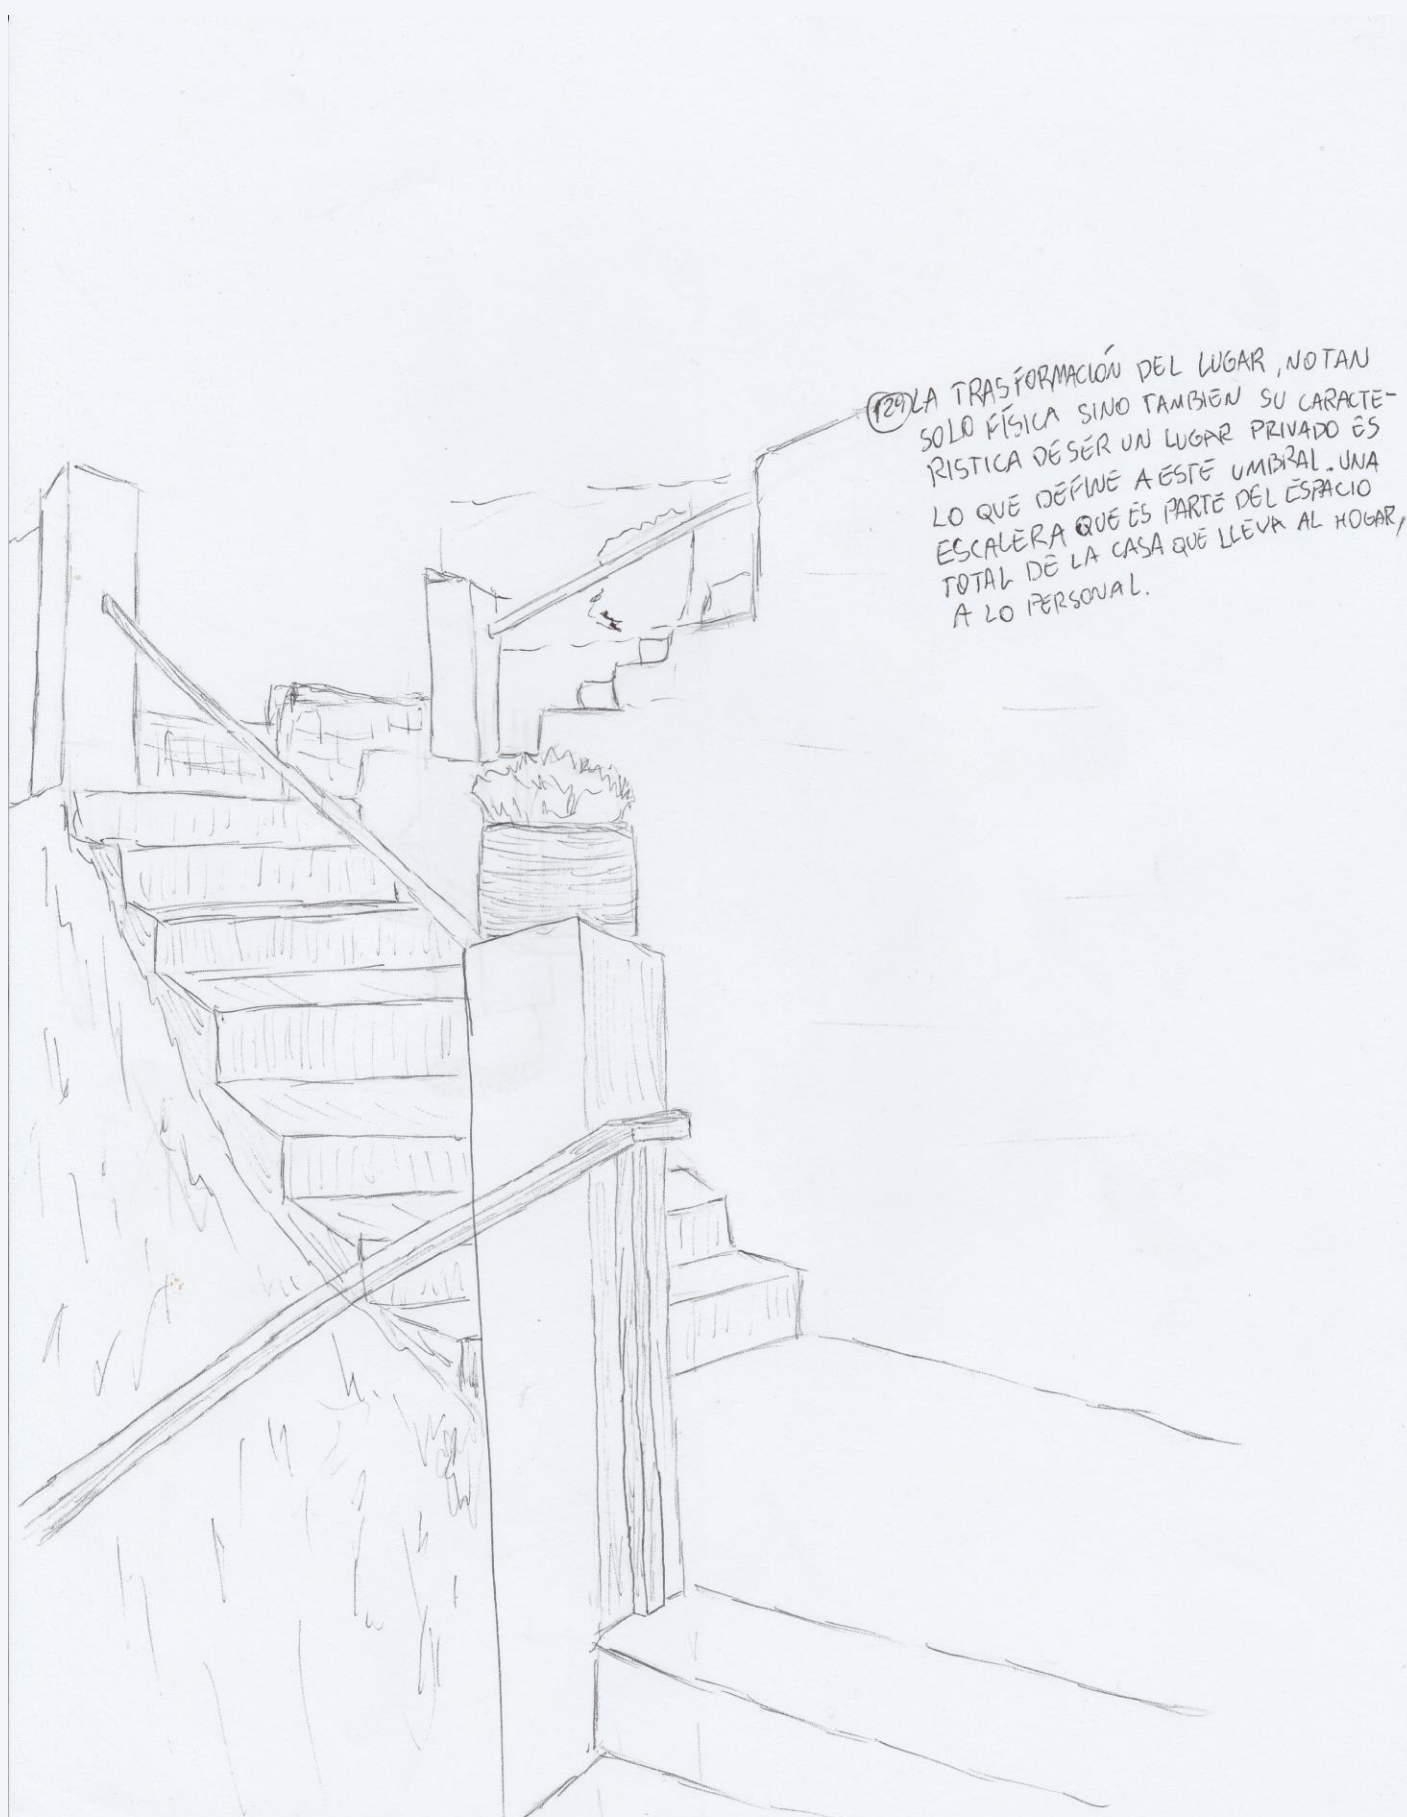 129 LA TRASFORMACIÓN DEL LUGAR, NO TAN
SOLO FÍSICA SINO TAMBIEN SU CARACTE-
RISTICA DE SER UN LUGAR PRIVADO ES
LO QUE DEFINE A ESTE UMBRAL. UNA
ESCALERA QUE ES PARTE DEL ESPACIO
TOTAL DE LA CASA QUE LLEVA AL HOGAR,
A LO PERSONAL.